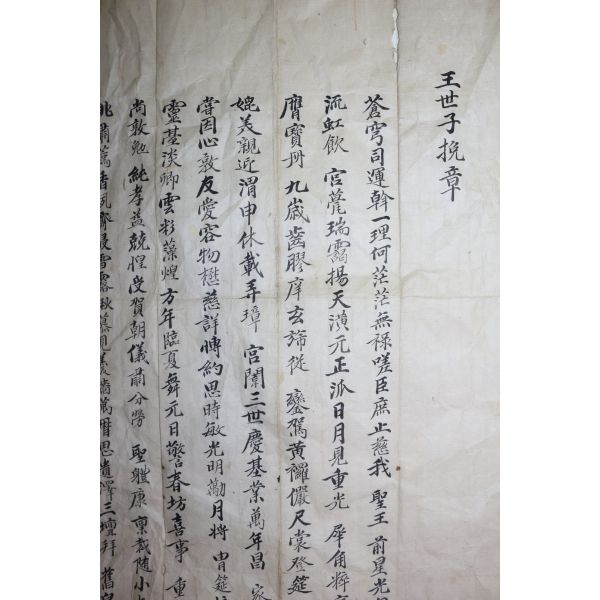 王世子挽章
蒼穹司運斡一理何茫茫無祿嗟臣庶止慈我 聖王 前星光
流虹飮 宮甍瑞靄揚天潢元正派日月見重光 犀角粹
膺寶冊 九歲齒膠庠玄 從 鑾駕黃 儼尺裳登筵
媲美親近渭申休載弄璋 宮闈三世慶基業萬年昌
嘗因心敦友愛容物懋慈詳博約思時敏光明勖月將 胄筵
靈基淡卿雲彩藻煌 方年臨夏舞元日敞春坊喜事 重
尚敦勉 純孝益兢惶受賀朝儀肅分勞 聖軆康 稟裁隨小
三壇拜 舊